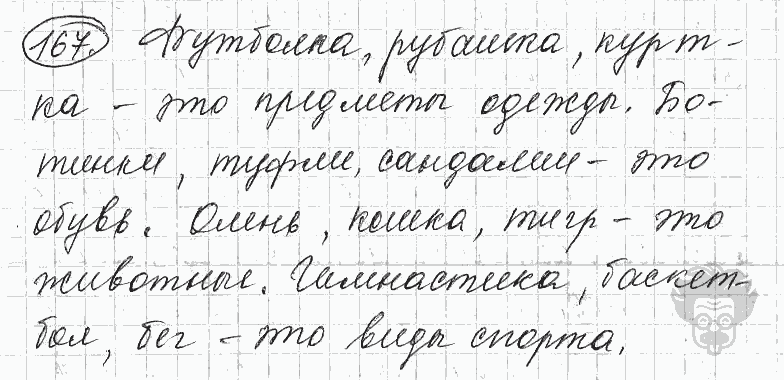 167. Футболка, рубашка, курт-
ка – это предметы одежды. Бо-
тинки, туфли, сандалии – это
обувь. Олень, кошка, тигр – это
животные. Гимнастика, баскет-
бол, бег – это виды спорта.